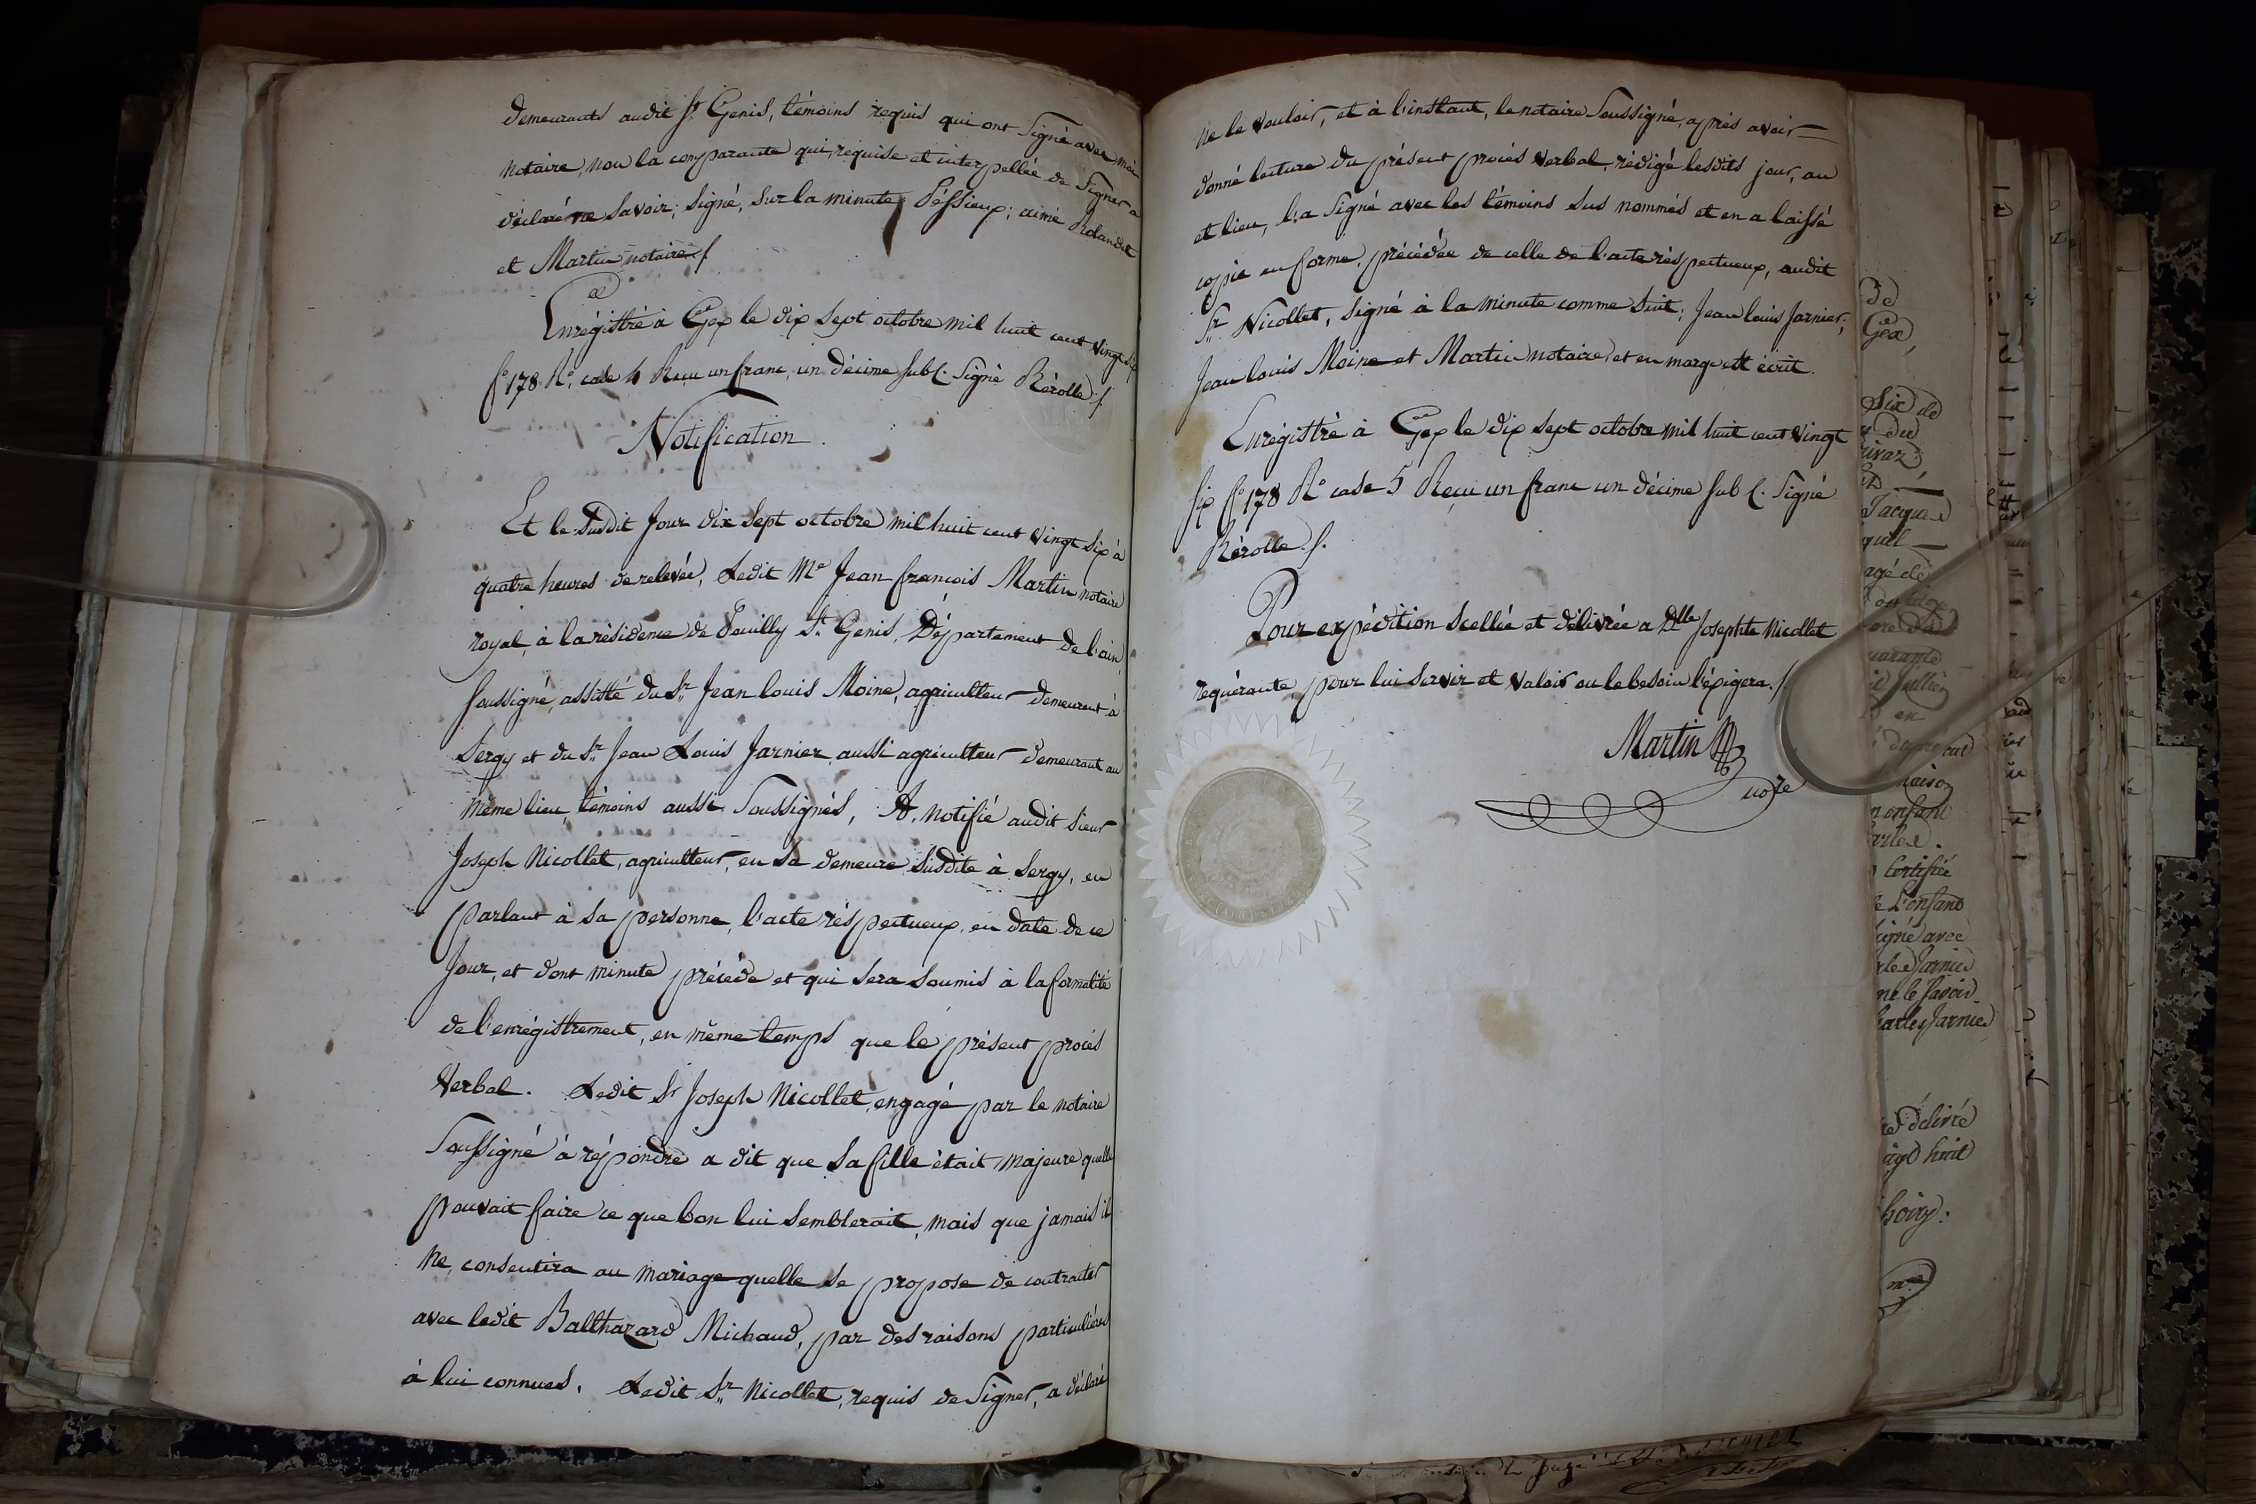 demeurants audit St Genis, témoins requis qui ont signé avec moi
notaire, non la comparante qui, requise et interpellée de signer a
déclaré ne savoir; signé, sur la minute; Péssieux; aimé Rolandet
et Martin notaire ./.
Enrégistré à Gex le dix sept octobre mil huit cent vingt six
fo 178 Ro, case 4 Reçu un franc, un décime sub l. signé Rérolle ./.
Notification
Et le susdit Jour dix sept octobre mil huit cent vingt six à
quatre heures de relevée, Ledit Me Jean françois Martin notaire
royal, à la résidence de Pouilly St Genis, Département de l'ain,
soussigné, assisté du Sr Jean Louis Moine, agriculteur demeurant à
Sergy et du Sr Jean Louis Jarnier aussi agriculteur demeurant au
même lieu, témoins aussi soussignés, A, notifié audit sieur
Joseph Nicollet, agriculteur, en sa demeure susdite à Sergy, en
parlant à sa personne, l'acte réspectueux, en date de ce
Jour, et dont minute précède et qui sera soumis à la formalité
de l'enrégistrement, en même temps que le présent procés
verbal. Ledit Sr Joseph Nicollet, engagé par le notaire
soussigné à répondre a dit que sa fille était majeure quelle
pouvait faire ce que bon lui semblerait, mais que jamais il
ne, consentira au mariage quelle se propose de contracter
avec ledit Balthazard Michaud, par des raisons particulières
à lui connues. Ledit Sr Nicollet, requis de signer, a déclaré
ne le vouloir, et à l'instant, le notaire soussigné, après avoir
donné lecture du présent procés verbal, rédigé lesdits jour, an
et lieu, l'a signé avec les témoins sus nommés et en a laissé
copie en forme, précédée de celle de l'acte réspectueux, audit
Sr Nicollet, signé à la minute comme suit; Jean louis Jarnier,
Jean louis Moine et Martin notaire, et en marge est écrit.
Enrégistré à Gex le dix sept octobre mil huit cent vingt
six fo 178 Ro case 5 Reçu un franc un décime sub l. signé
Rérolle ./.
Pour expédition scellée et délivrée a Dlle Josephte Nicollet
requérante, pour lui servir et valoir ou le besoin l'éxigera ./.
Martin
nore
de
Gex,
Six de
Jacque
quel
agé de
en
n enfant
certifiée
L'enfant
signé avec
Jarnier
le savoir
Jarnier
délivré
huit